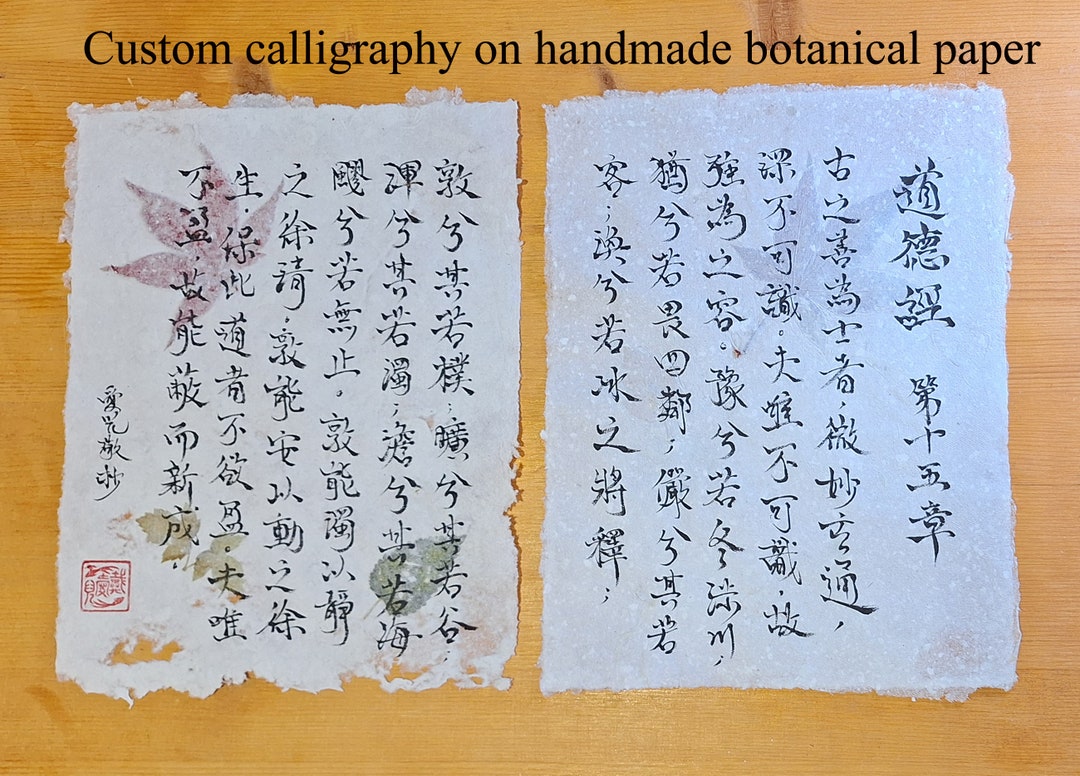 Custom calligraphy on handmade botanical paper
道德經 第十五章
古之善為士者，微妙玄通，
深不可識。夫唯不可識，故
強為之容。豫兮若冬涉川；
猶兮若畏四鄰；儼兮其若
客；渙兮若冰之將釋；
敦兮其若樸；曠兮其若谷；
渾兮其若濁；澹兮其若海
飂兮若無止。孰能濁以靜
之徐清，孰能安以動之徐
生。保此道者不欲盈。夫唯
不盈，故能蔽而新成。
敬抄